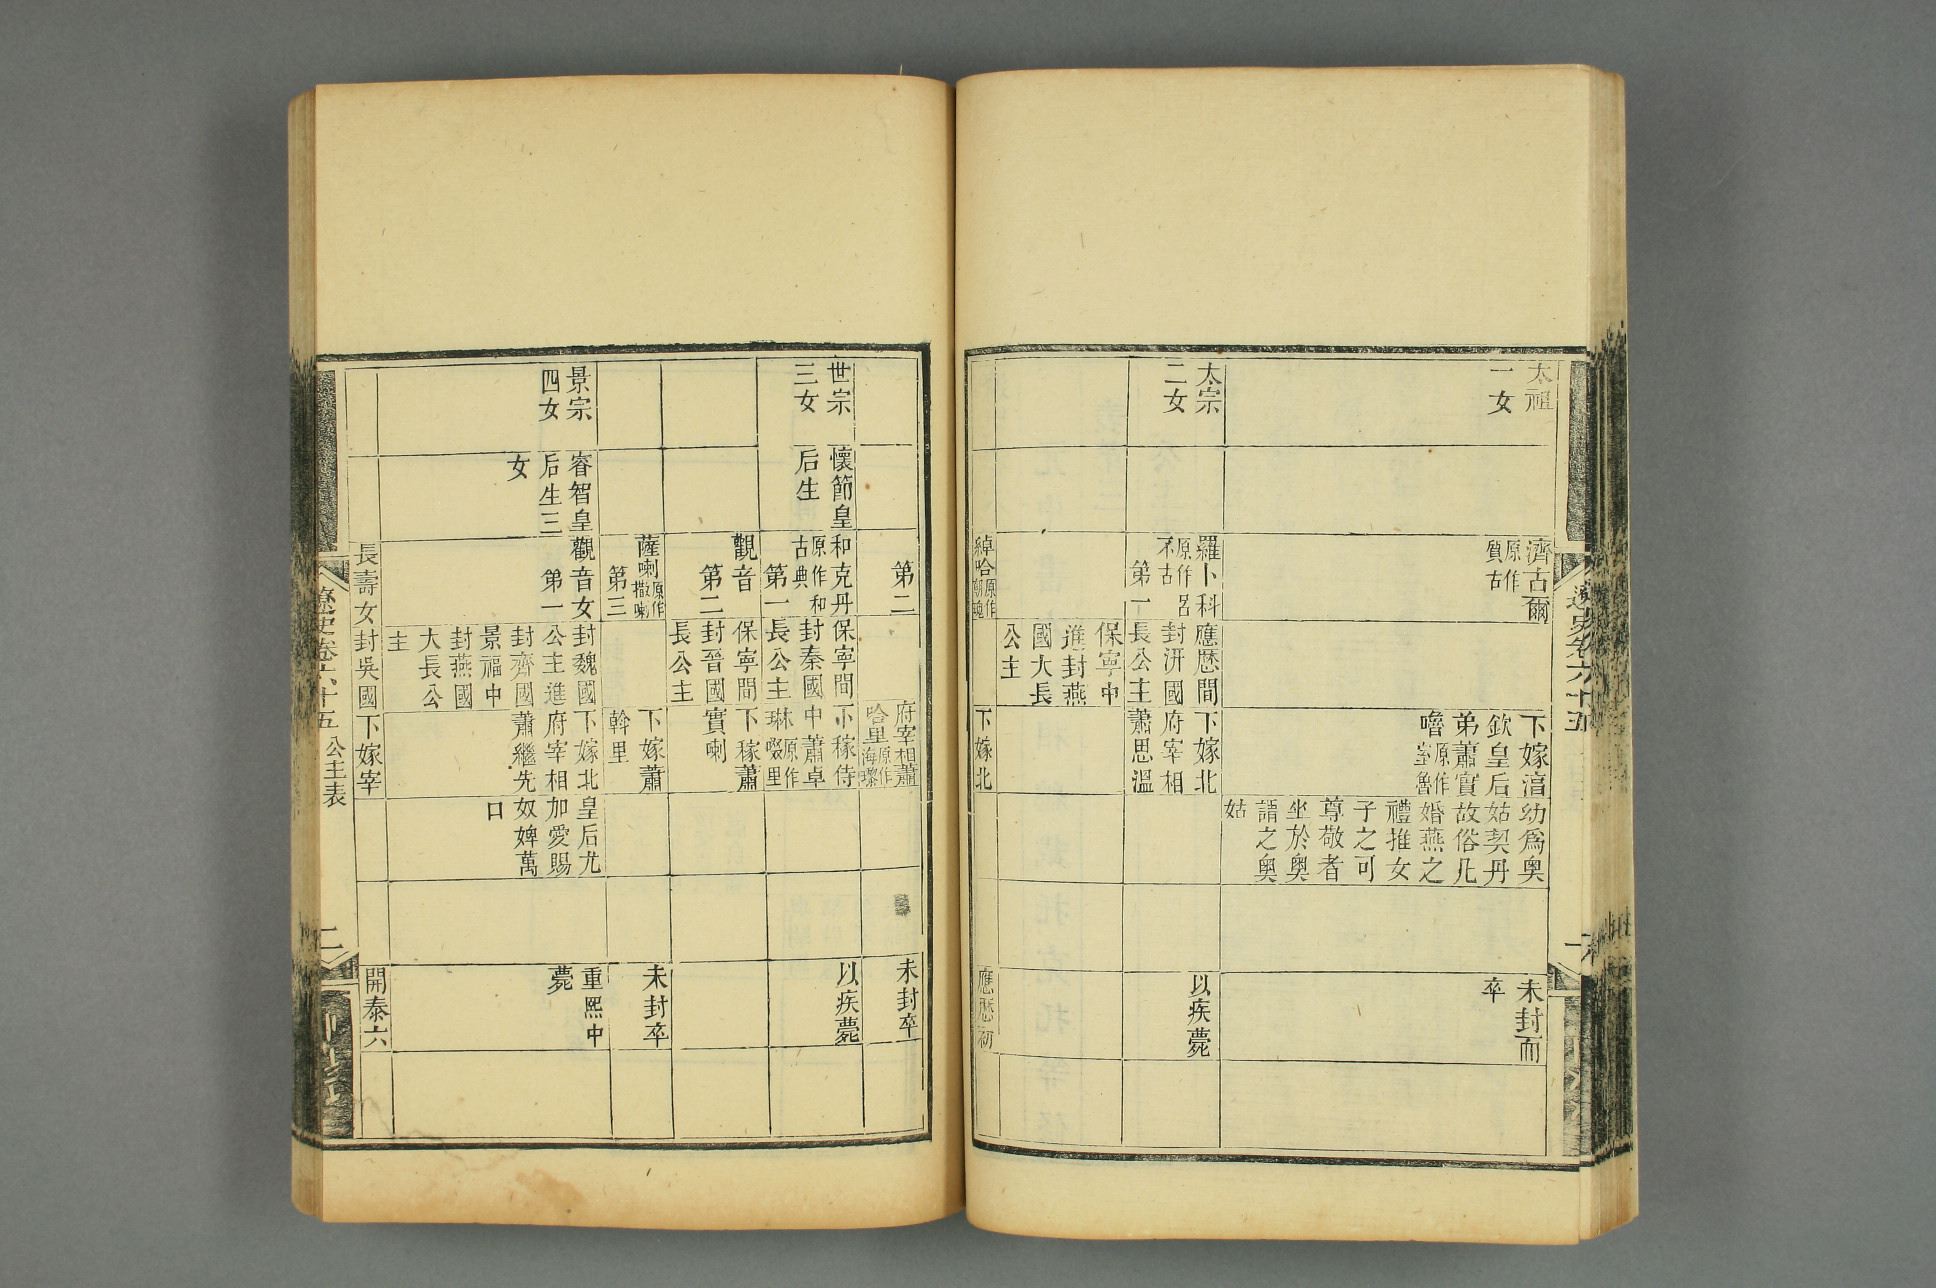 遼史卷六十五
一
太祖
一女
濟古爾
原作
質古
下嫁淯
欽皇后
弟蕭實
嚕原作
室魯
幼爲奧
姑契丹
故俗凡
婚燕之
禮推女
子之可
尊敬者
坐於奧
謂之奧
姑
未封而
卒
太宗
二女
羅卜科
原作呂
不古
第一
應厯間
封汧國
長公主
保寧中
進封燕
國大長
公主
下嫁北
府宰相
蕭思溫
以疾薨
綽哈原作
嘲瑰
下嫁北
應厯初
第二
府宰相蕭
哈里原作
海瓈
未封卒
世宗
三女
懷節皇
后生
和克丹
原作和
古典
第一
保寧間
封秦國
長公主
下嫁侍
中蕭卓
琳原作
啜里
以疾薨
觀音
第二
保寧間
封晉國
長公主
下嫁蕭
實喇
薩喇原作
撒喇
第三
下嫁蕭
斡里
未封卒
景宗
四女
睿智皇
后生三
女
觀音女
第一
封魏國
公主進
封齊國
景福中
封燕國
大長公
主
下嫁北
府宰相
蕭繼先
皇后尤
加愛賜
奴婢萬
口
重熙中
薨
長壽女
封吳國
下嫁宰
開泰六
遼史卷六十五 公主表
二